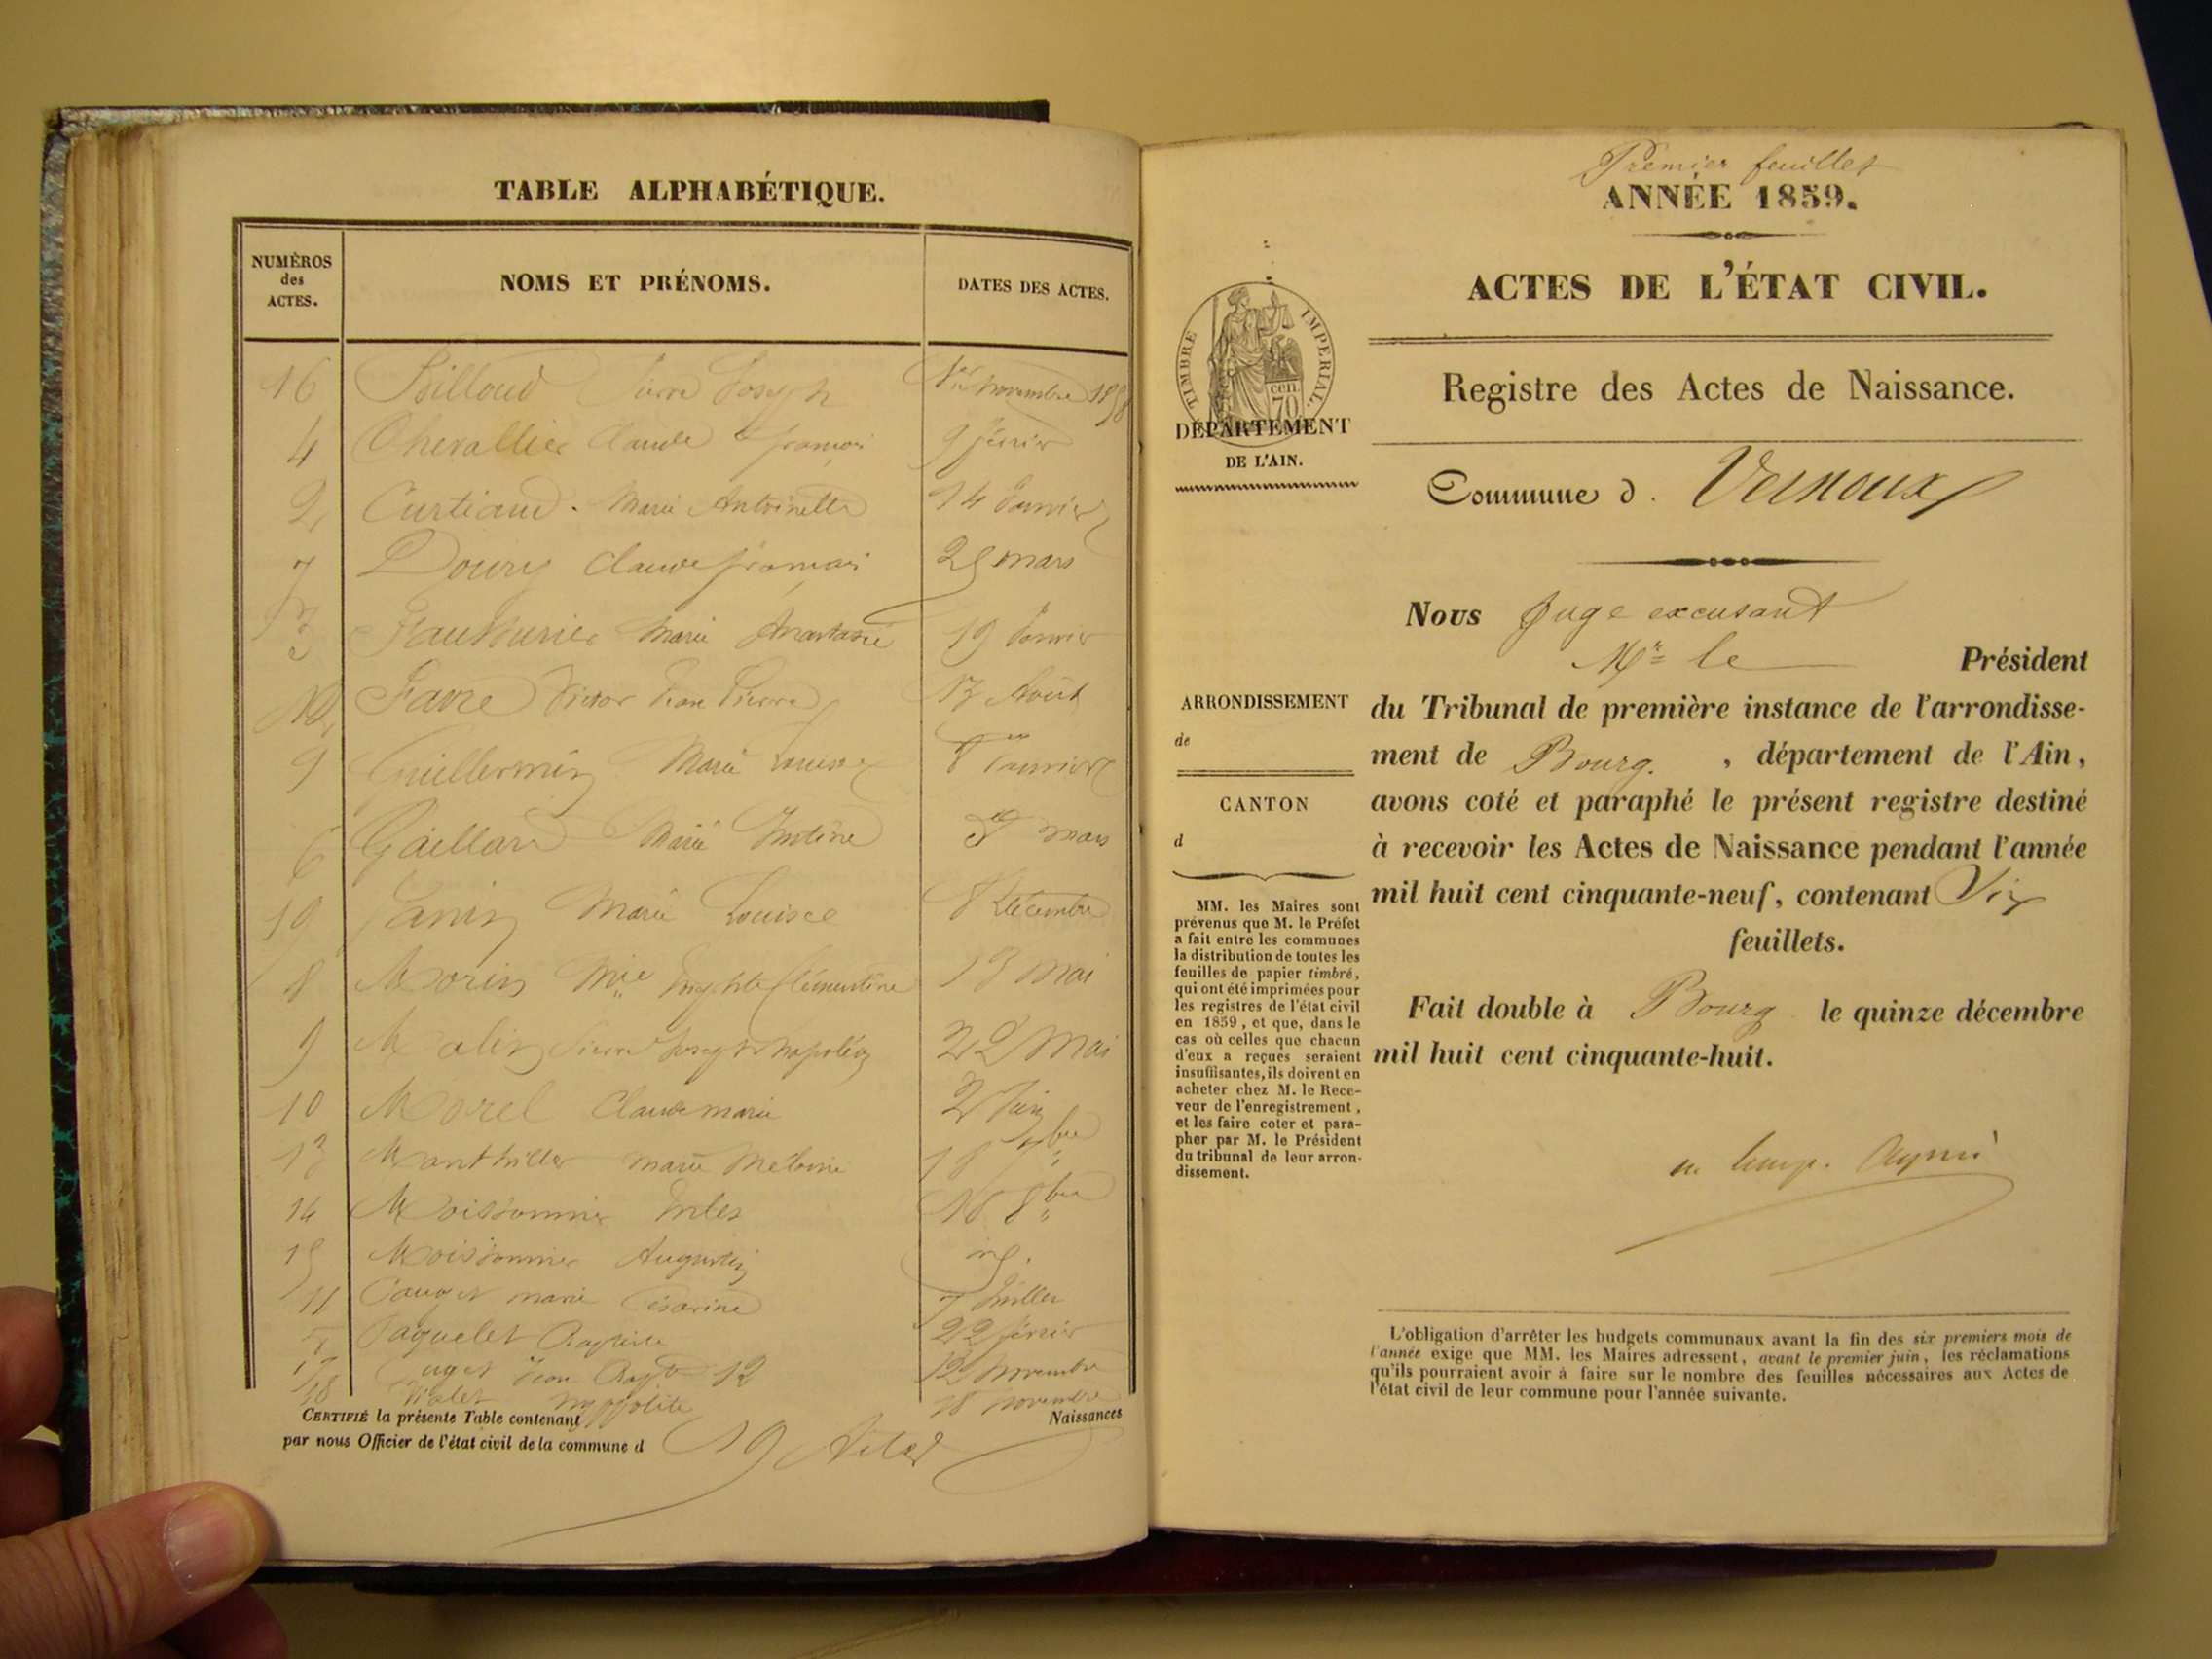 TABLE ALPHABÉTIQUE.
NUMÉROS des ACTES.
NOMS ET PRÉNOMS.
DATES DES ACTES.
16 Billoud Pierre Joseph 1er novembre 1858
4 Chevallier Claude françois 9 février
2 Curtiaud. Marie Antoinette 14 Janvier
7 Doury Claude françois 25 mars
3 Fauthurier Marie Anastasie 19 Janvier
12 Favre Victor Jean Pierre 13 Août
Guillermin Marie Louise 1er Janvier
6 Gaillard Marie Justine mars
19 Janin Marie Louise 8 Décembre
8 Morin Mie Clémentine 13 mai
9 Malin Pierre Joseph Napoléon 22 mai
10 Morel Claude marie 2 Juin
13 marie
14 Moissonnier Jules 16 8bre
15 Moissonnier Augustin
11 marie Césarine 7 Juillet
Paquelet 22 février
17 Jean 12 novembre
18 hyppolite 18 novembre
CERTIFIÉ la présente Table contenant Naissances
par nous Officier de l'état civil de la commune d 19
Premier feuillet
ANNÉE 1859.
ACTES DE L'ÉTAT CIVIL.
TIMBRE IMPÉRIAL.
cen
70
DÉPARTEMENT
DE L'AIN.
Registre des Actes de Naissance.
Commune d. Vernoux
Nous Juge excusant
Mr le Président
ARRONDISSEMENT
de
CANTON
d
du Tribunal de première instance de l'arrondisse-
ment de Bourg. , département de l'Ain,
avons coté et paraphé le présent registre destiné
à recevoir les Actes de Naissance pendant l'année
mil huit cent cinquante-neuf, contenant Six
feuillets.
Fait double à Bourg le quinze décembre
mil huit cent cinquante-huit.
MM. les Maires sont
prévenus que M. le Préfet
a fait entre les communes
la distribution de toutes les
feuilles de papier timbré,
qui ont été imprimées pour
les registres de l'état civil
en 1859, et que, dans le
cas où celles que chacun
d'eux a reçues seraient
insuffisantes, ils doivent en
acheter chez M. le Rece-
veur de l'enregistrement,
et les faire coter et para-
pher par M. le Président
du tribunal de leur arron-
dissement.
L'obligation d'arrêter les budgets communaux avant la fin des six premiers mois de
l'année exige que MM. les Maires adressent, avant le premier juin, les réclamations
qu'ils pourraient avoir à faire sur le nombre des feuilles nécessaires aux Actes de
l'état civil de leur commune pour l'année suivante.